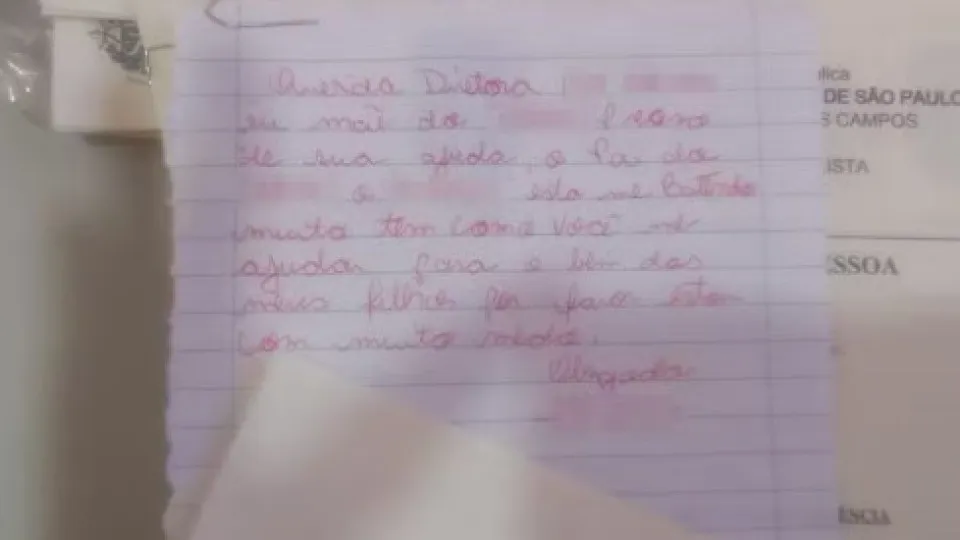 Querida Diretora
eu mãe do
de sua ajuda, o Pai do
e esta me Batendo
muito tem como você me
ajudar para o bem dos
meus filhos por favor estou
com muito medo.
Obrigada
lica
DE SÃO PAULO
S CAMPOS
ISTA
SSOA
ÊNCIA